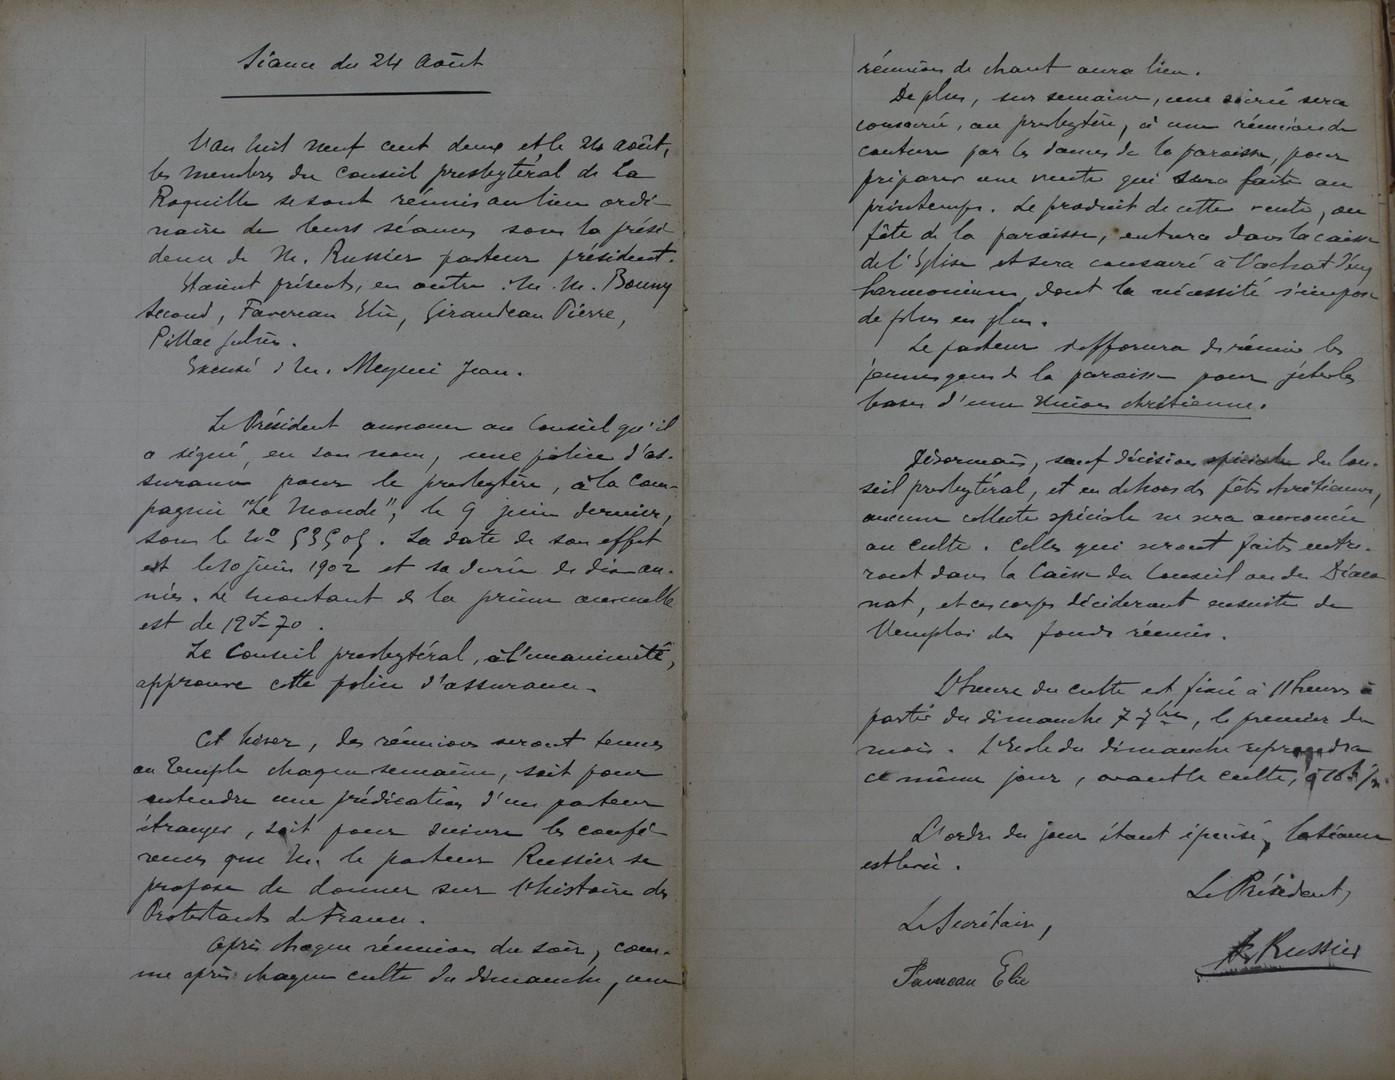 Séance du 24 Août
L'an mil neuf cent deux et le 24 août,
les membres du Conseil presbytéral de La
Roquille se sont réunis au lieu ordi-
naire de leurs séances sous la prési-
dence de M. Russier pasteur président.
Etaient présents, en outre : M. M. Bonny
Second, Favereau Elie, Giraudeau Pierre,
Pillac Julien.
Excusé : M. Meynei Jean.
Le Président annonce au Conseil qu'il
a signé, en son nom, une police d'as-
surance pour le presbytère, à la Com-
pagnie "Le Monde", le 9 juin dernier,
sous le No. La date de son effet
est le 10 juin 1902 et sa durée de dix an-
nées. Le montant de la prime annuelle
est de 12f-70.
Le Conseil presbytéral, à l'unanimité,
approuve cette police d'assurance.
Cet hiver, des réunions seront tenues
au Temple chaque semaine, soit pour
entendre une prédication d'un pasteur
étranger, soit pour suivre les confé-
rences que M. le pasteur Russier se
propose de donner sur l'histoire des
Protestants de France.
Après chaque réunion du soir, com-
me après chaque culte du dimanche, une
réunion de chant aura lieu.
De plus, sur semaine, une soirée sera
consacrée, au presbytère, à une réunion de
couture par les dames de la paroisse, pour
préparer une vente qui sera faite au
printemps. Le produit de cette vente, ou
fête de la paroisse, entrera dans la caisse
de l'Eglise et sera consacré à l'achat d'un
harmonium dont la nécessité s'impose
de plus en plus.
Le pasteur s'efforcera de réunir les
jeunes gens de la paroisse pour jeter les
bases d'une Union chrétienne.
Désormais, sauf décision spéciale du Con-
seil presbytéral, et en dehors des fêtes chrétiennes,
aucune collecte spéciale ne sera annoncée
au culte. Celles qui seront faites entre-
ront dans la Caisse du Conseil ou du Diaco
nat, et ces corps décideront ensuite de
l'emploi des fonds réunis.
L'heure du culte est fixée à 11 heures à
partir du dimanche 7 7bre, le premier du
mois. L'Ecole du dimanche reprendra
ce même jour, avant le culte, à 10h 1/2.
L'ordre du jour étant épuisé, la séance
est levée.
Le Président,
Le Secrétaire,
Russier
Favereau Elie